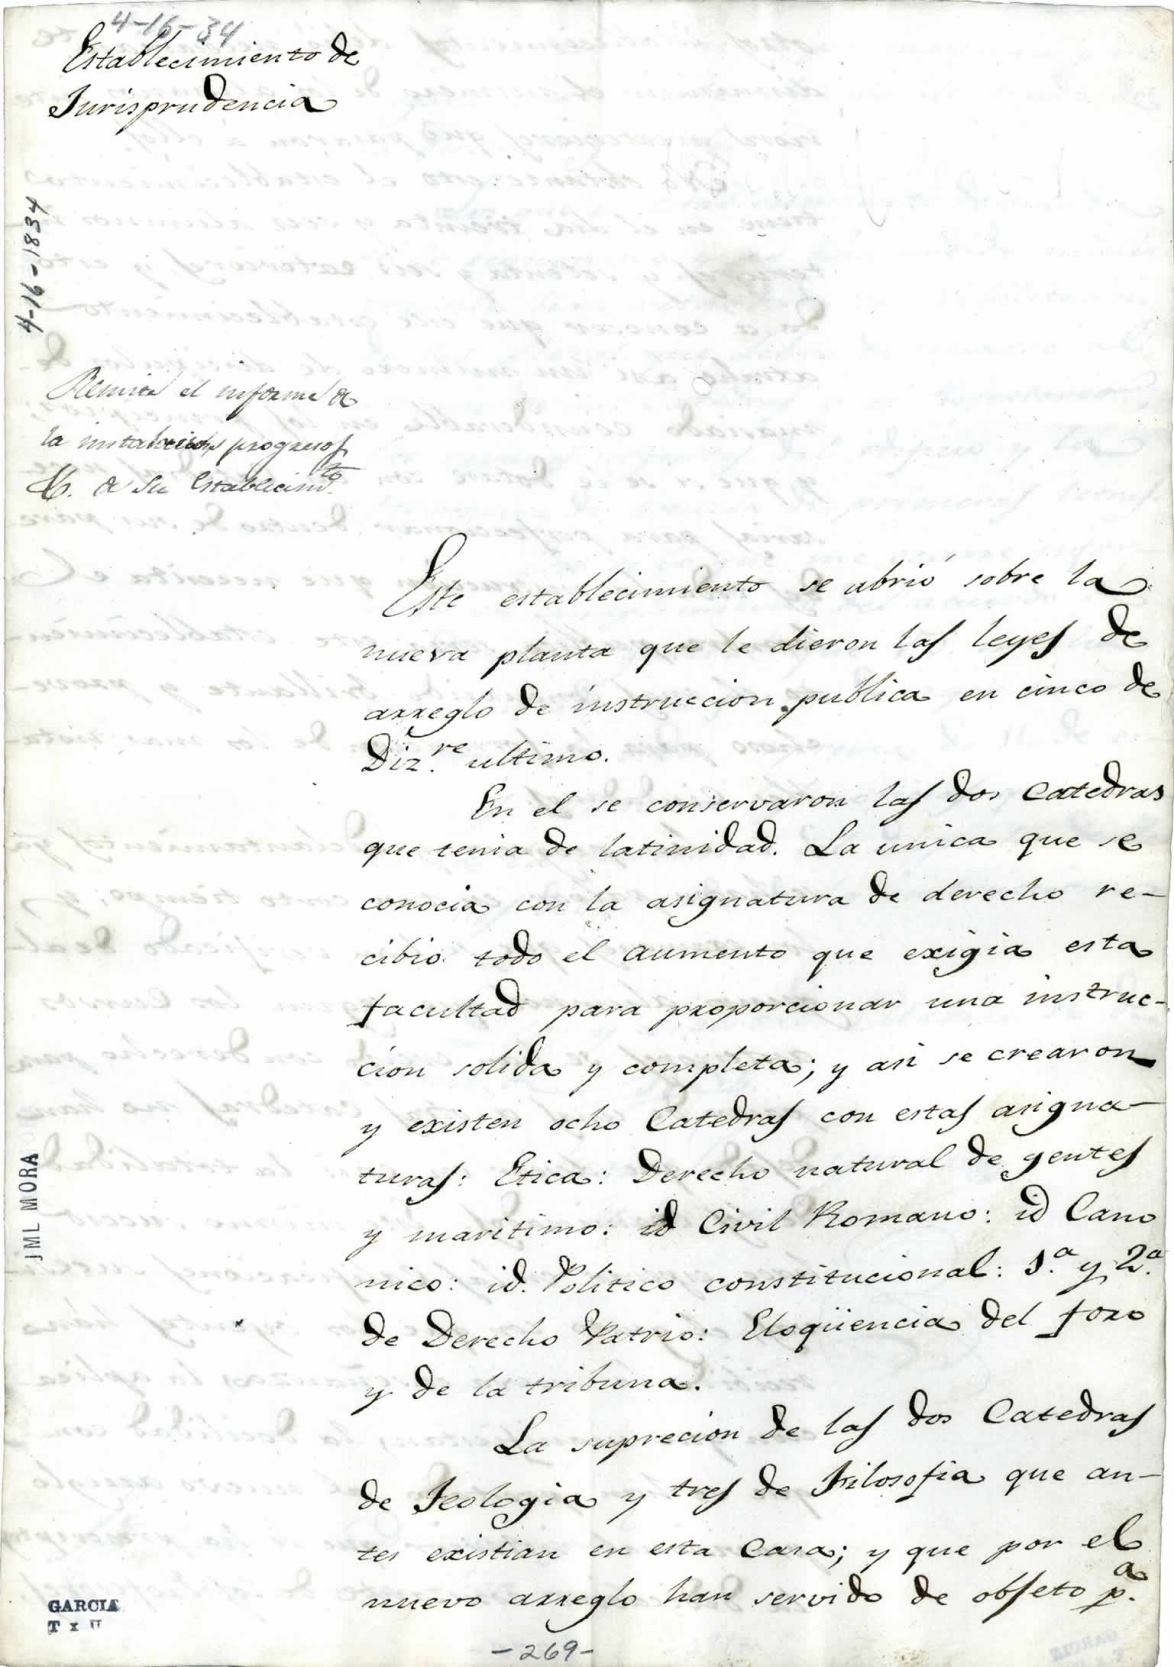 4-16-34
Establecimiento de
Jurisprudencia
4-16-1834
Remite el informe de
la instalacion progresos
&. de su Establecim.to
Este establecimiento se abrió sobre la
nueva planta que le dieron las leyes de
arreglo de instruccion publica en cinco de
Diz.re ultimo.
En el se conservaron las dos Catedras
que tenia de latinidad. La unica que se
conocia con la asignatura de derecho re-
cibio todo el aumento que exigia esta
facultad para proporcionar una instruc-
cion solida y completa; y asi se crearon
y existen ocho Catedras con estas asigna-
turas: Etica: Derecho natural de gentes
y maritimo: id Civil Romano: id Cano
nico: id. Politico constitucional: 1.a y 2.a
de Derecho Patrio: Eloqüencia del foro
y de la tribuna.
La suprecion de las dos Catedras
de Teologia y tres de Filosofia que an-
tes existian en esta Casa; y que por el
nuevo arreglo han servido de objeto p.a
JML MORA
GARCIA
T x U
-269-